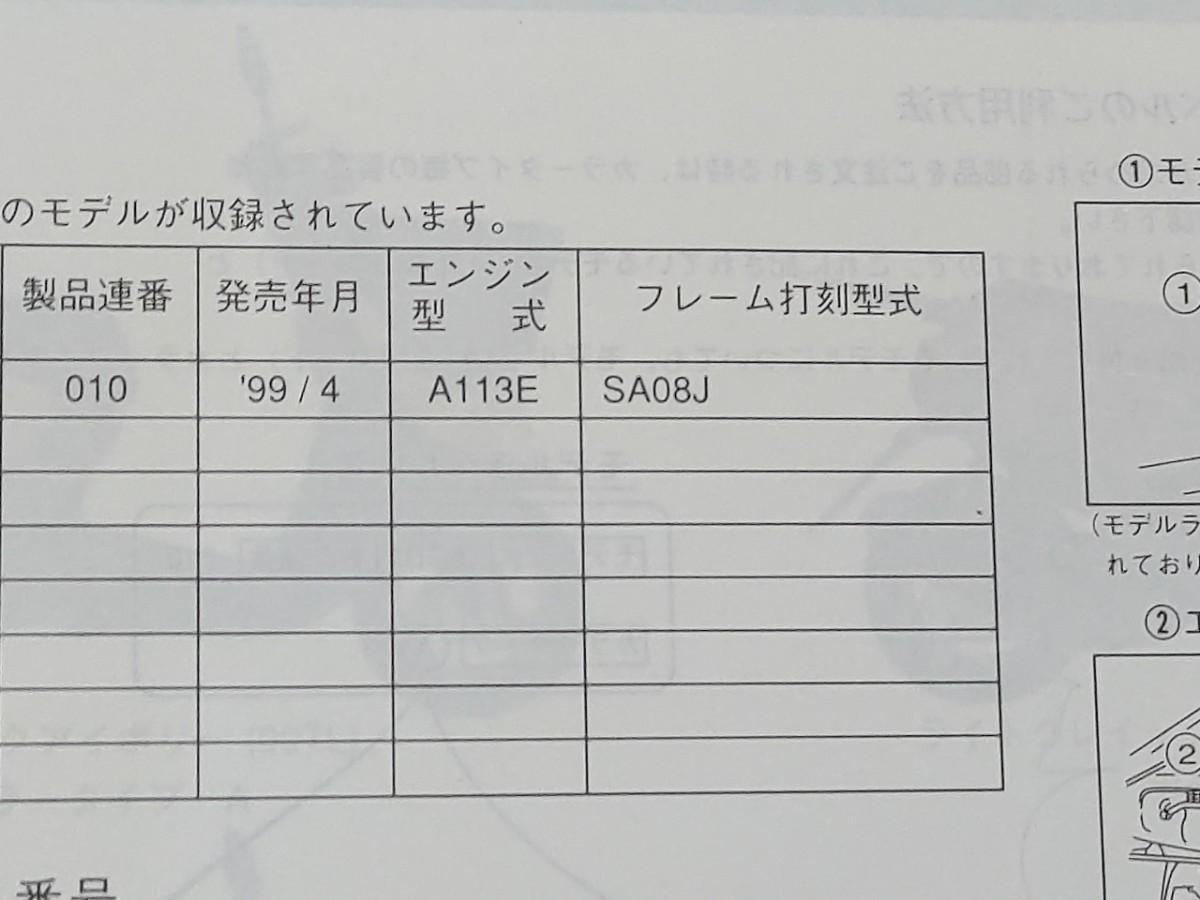 のモデルが収録されています。
製品連番 発売年月 エンジン型式 フレーム打刻型式
010 '99 / 4 A113E SA08J
①モデ
①
(モデルラ
れており
②エ
②
番号